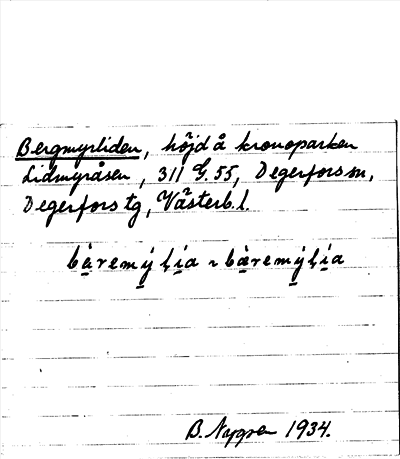 Bergmyrliden, höjd å kronoparken
Lidmyråsen, 311 G. 55, Degerfors sn,
Degerfors tg, Västerb. l.
bàremýḷía ~ bàremýḷía
B. Nygren 1934.